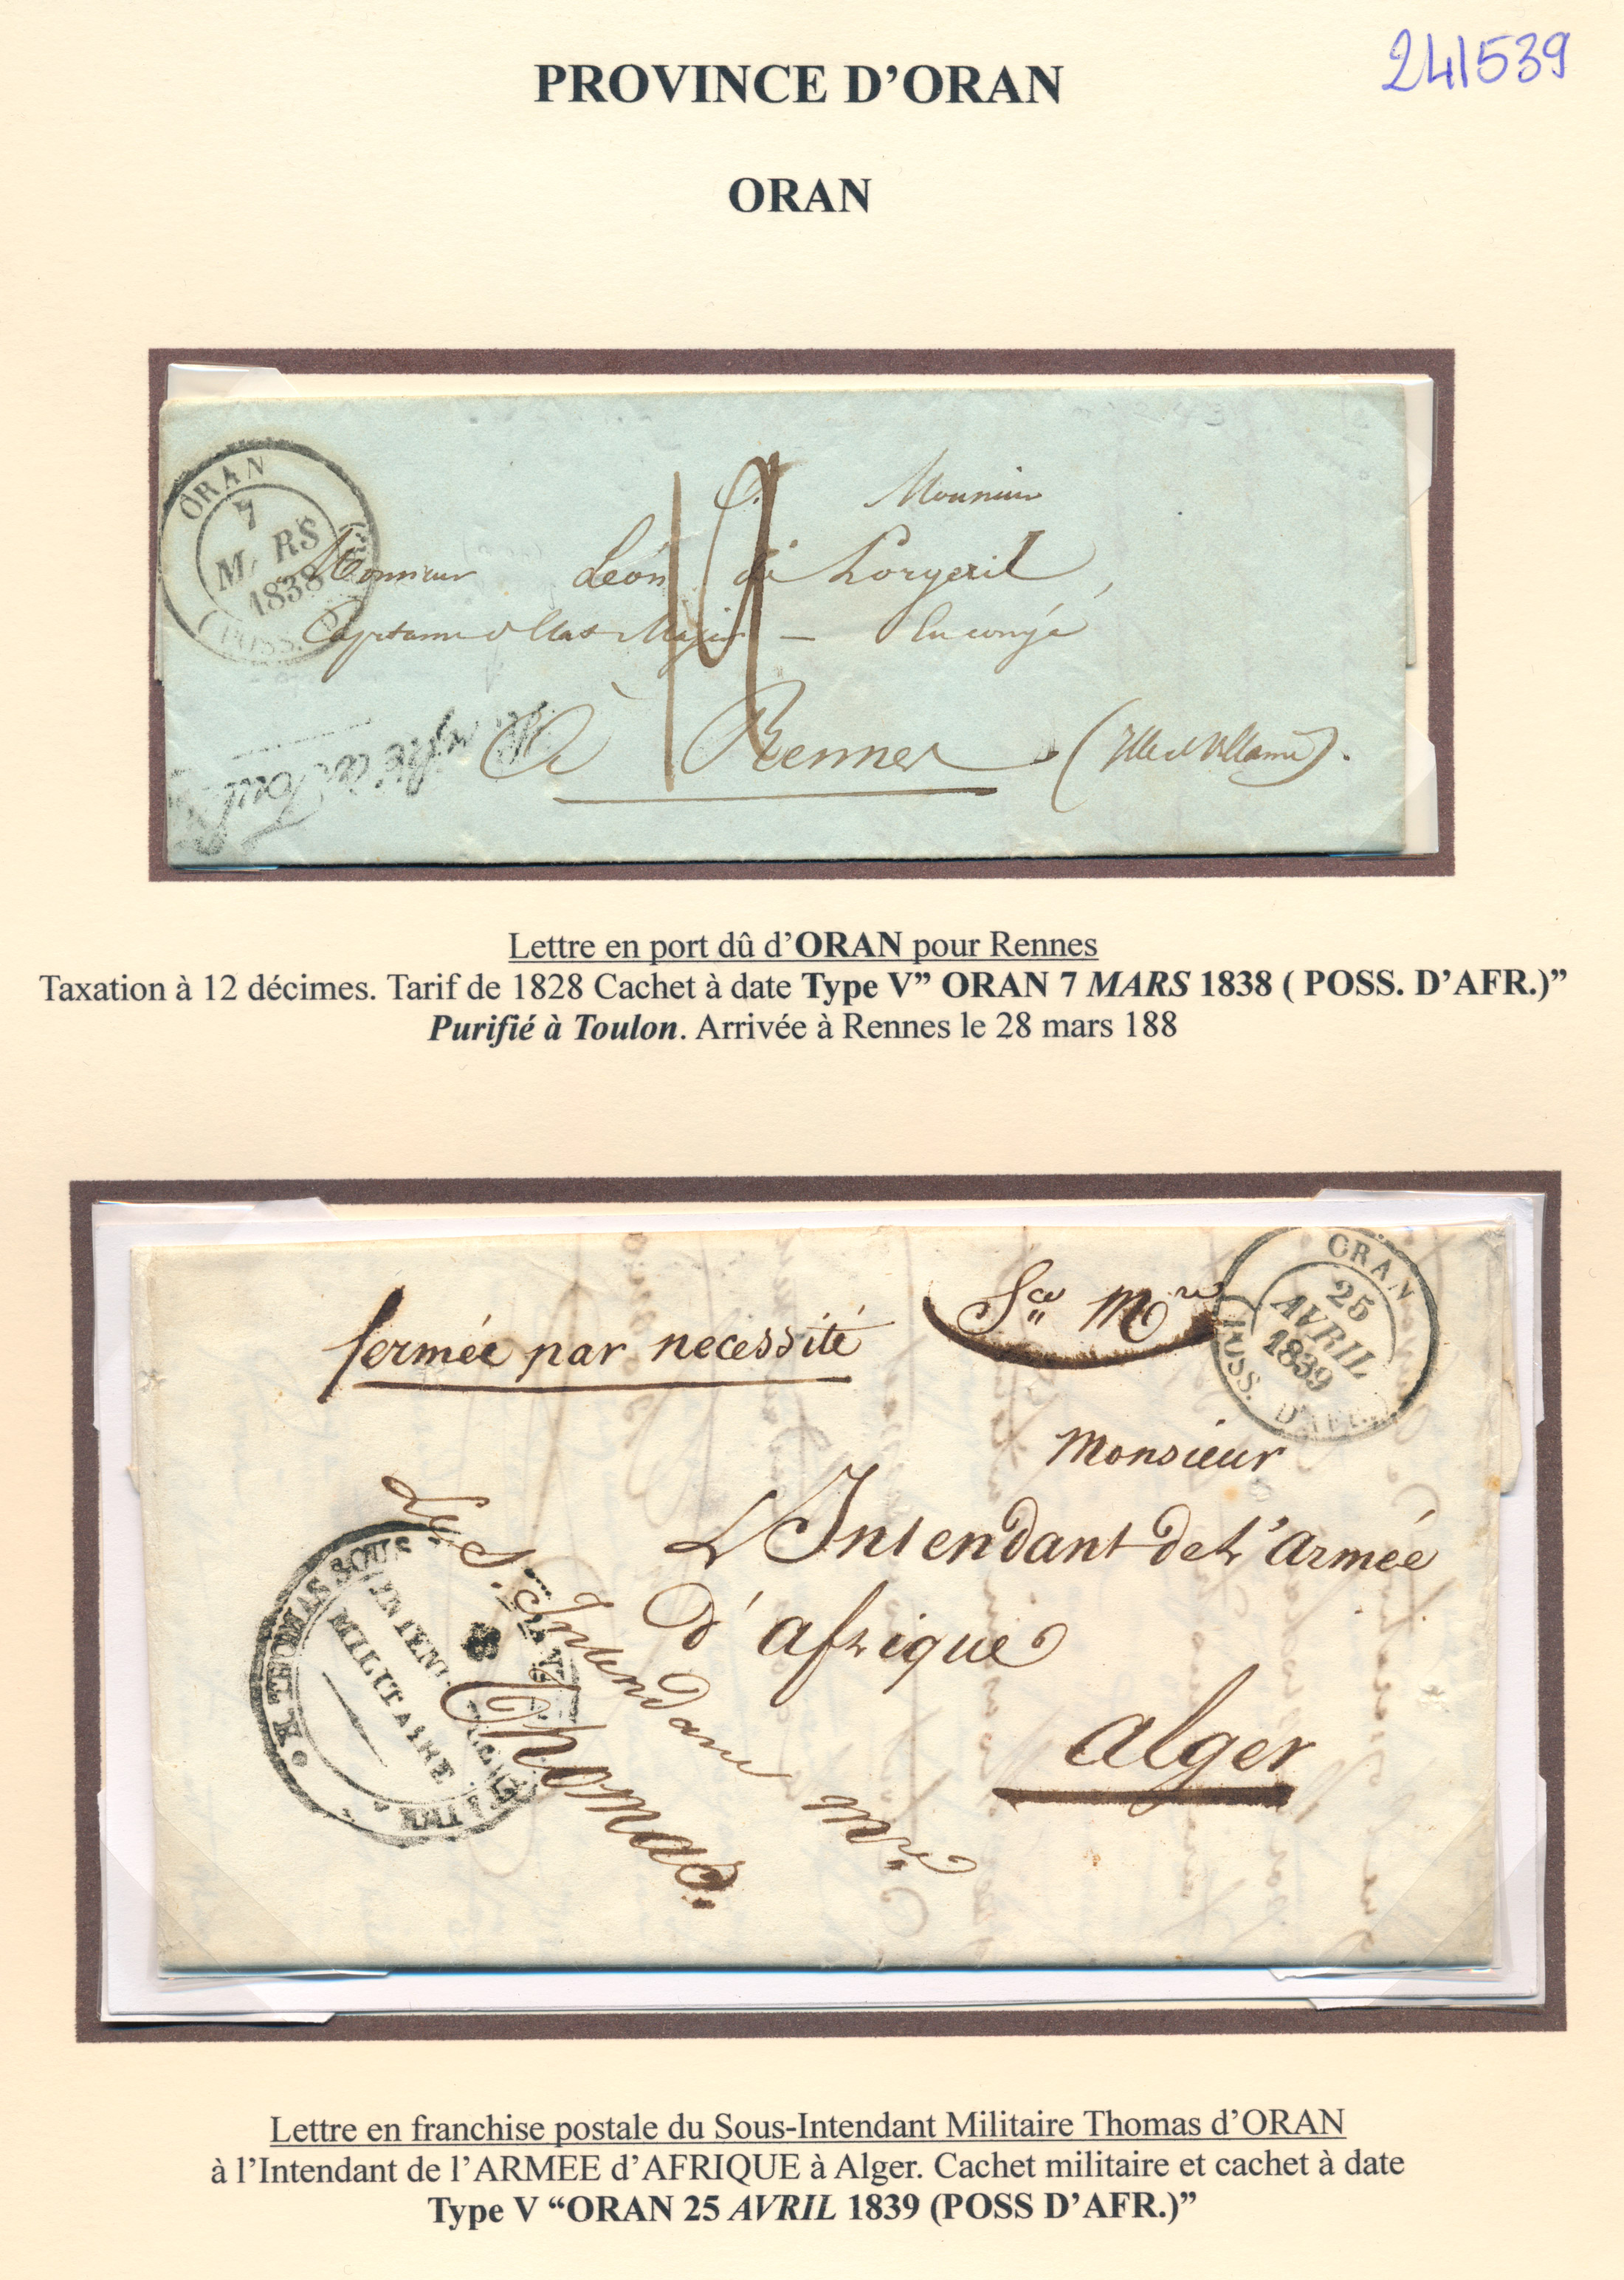 241539
PROVINCE D'ORAN
ORAN
ORAN
7
M RS
1838
(POSS. D'
A Monsieur
Monsieur Léon de Lorgeril,
Capitaine d'Etat Major — En congé
à Rennes (Ille et Villaine).
Purifié à Toul
Lettre en port dû d'ORAN pour Rennes
Taxation à 12 décimes. Tarif de 1828 Cachet à date Type V" ORAN 7 MARS 1838 ( POSS. D'AFR.)"
Purifié à Toulon. Arrivée à Rennes le 28 mars 188
fermée par necessité
Sce Mre
ORAN
25
AVRIL
1839
(POSS. D'AFR.)
Monsieur
L'Intendant de L'armée
d'afrique
alger
Le S. Intendant Mre
Thomas.
R. THOMAS SOUS
MILITAIRE
Lettre en franchise postale du Sous-Intendant Militaire Thomas d'ORAN
à l'Intendant de l'ARMEE d'AFRIQUE à Alger. Cachet militaire et cachet à date
Type V "ORAN 25 AVRIL 1839 (POSS D'AFR.)"